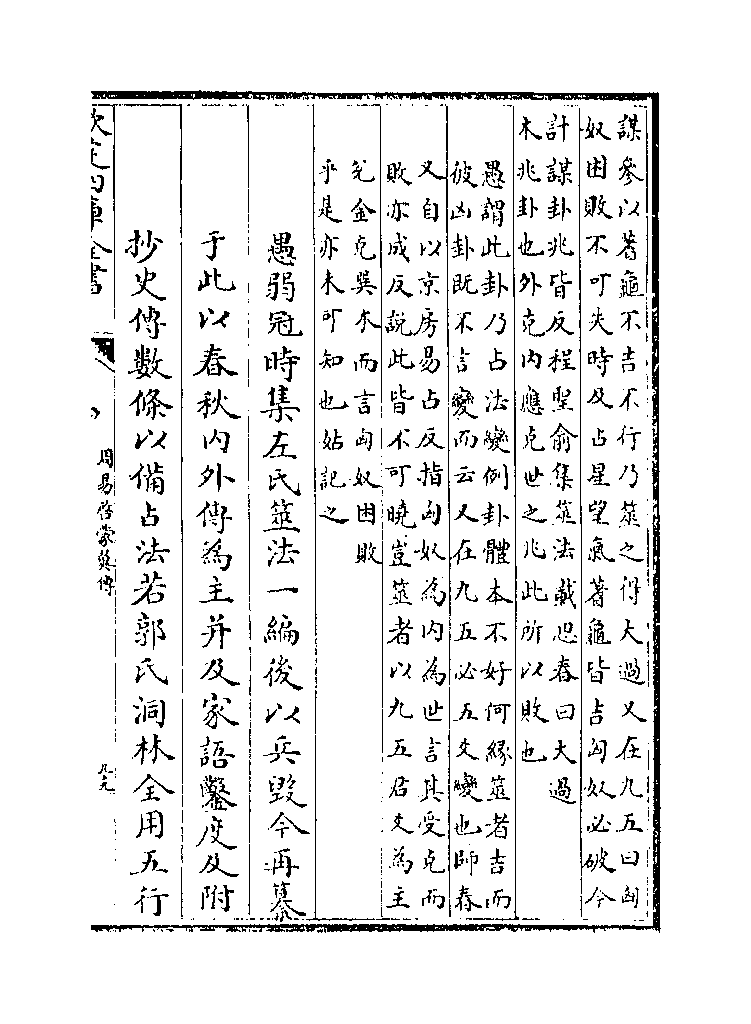 謀參以蓍龜不吉不行乃筮之得大過爻在九五曰匈
奴困敗不可失時及占星望氣蓍龜皆吉匈奴必破今
計謀卦兆皆反程聖俞集筮法載師春曰大過
木兆卦也外克内應克世之兆此所以敗也
愚謂此卦乃占法變例卦體本不好何緣筮者吉而
彼凶卦既不言變而云爻在九五必五爻變也師春
又自以京房易占反指匈奴為内為世言其受克而
敗亦成反説此皆不可曉豈筮者以九五君爻為主
兊金克巽木而言匈奴困敗
乎是亦未可知也姑記之
愚弱冠時集左氏筮法一編後以兵毀今再纂
于此以春秋内外傳為主并及家語鑿度及附
抄史傳數條以備占法若郭氏洞林全用五行
欽定四庫全書
周易啓蒙翼傳